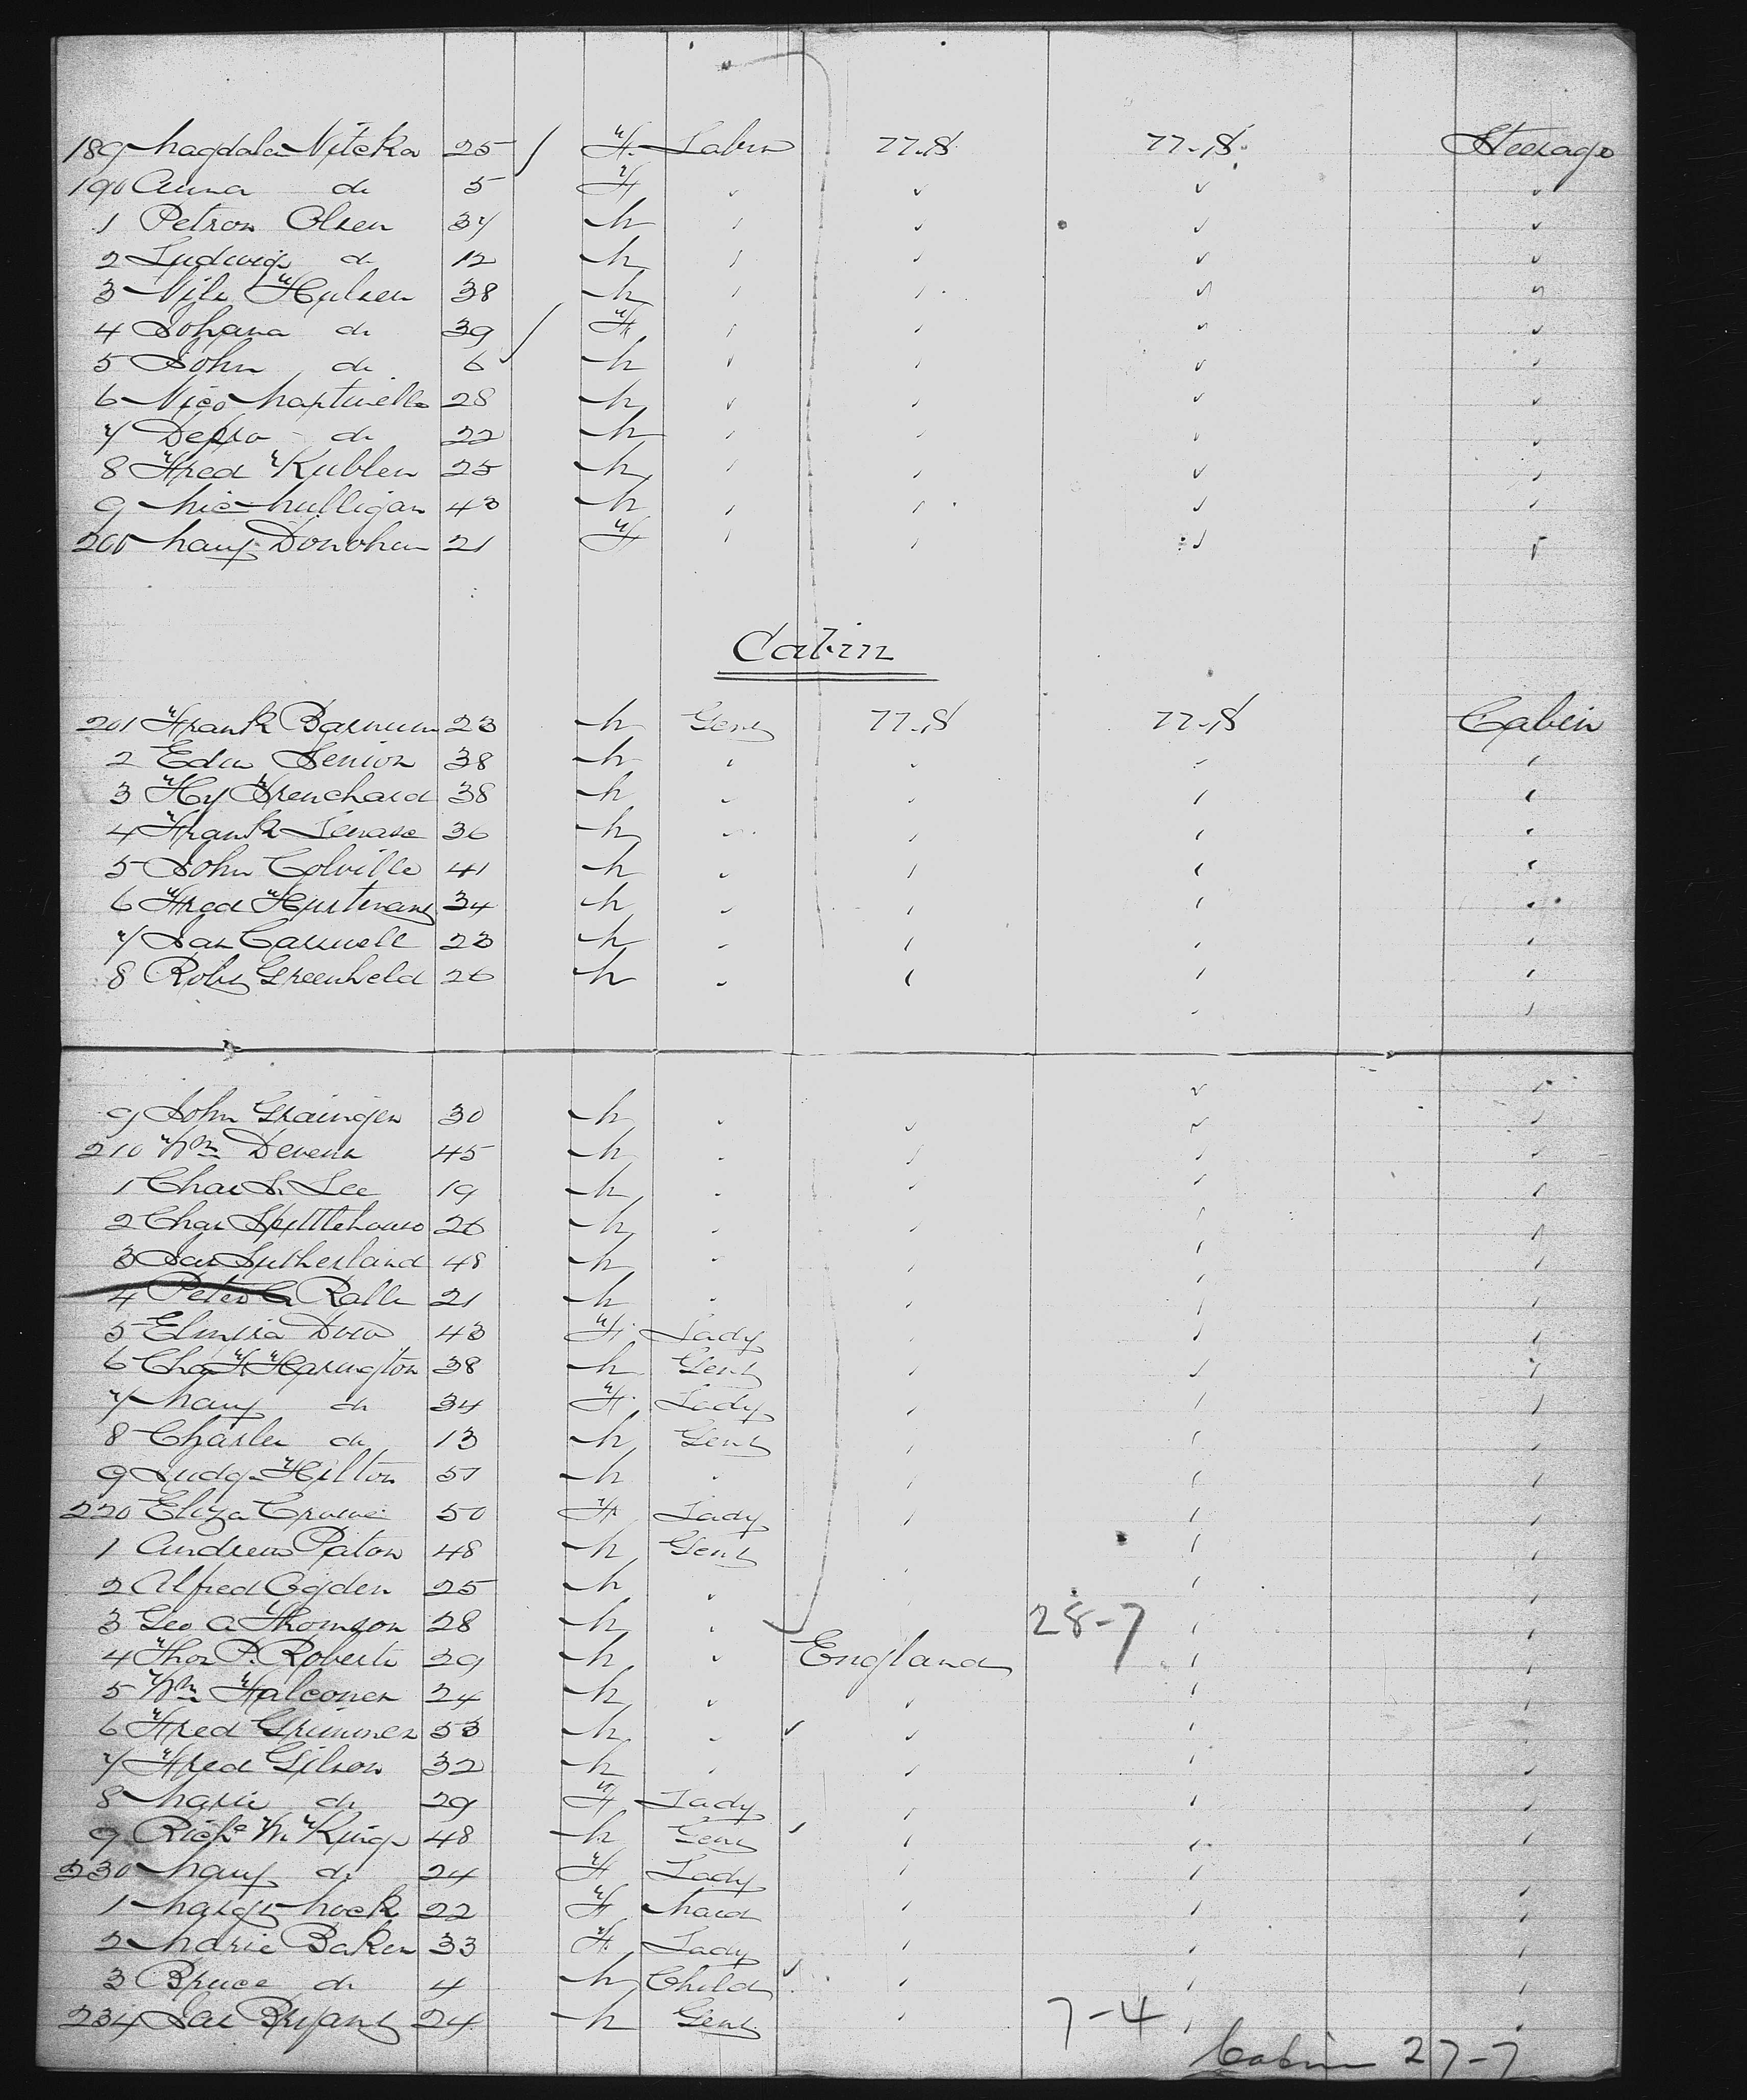 189 Magdalen Niteka 25 F. Labor U.S. U.S. Steerage
190 Anna do 5 F
1 Petron Olsen 37 M
2 Ludwig do 12 M
3 Nils Hulsen 38 M
4 Johana do 39 F
5 John do 6 M
6 Nico Martinelli 28 M
7 do 22 M
8 Fred Kubler 25 M
9 Mic Mulligan 43 M
200 Mary Donohue 21 F
Cabin
201 Frank Barnum 23 M Gent U.S U.S Cabin
2 Edw Senior 38 M
3 Hy Trenchard 38 M
4 Frank 36 M
5 John Colville 41 M
6 Fred 34 M
7 Jas Carswell 23 M
8 Robt Greenheld 26 M
9 John Grainger 30 M
210 Wm Devens 45 M
1 Chas S. Lee 19 M
2 Chas Spittlehouse 26 M
3 Jas Sutherland 48 M
4 Peter C Ralli 21 M
5 Elmira Dow 43 F. Lady
6 Chas F. Harington 38 M Gent
7 Mary do 34 F. Lady
8 Charles do 13 M Gent
9 Judge Hilton 57 M
220 Eliza Crowe 50 F Lady
1 Andrew Paton 48 M Gent
2 Alfred Ogden 25 M
3 Geo A Thomson 28 M 28-7
4 Thos P. Roberts 29 M England
5 Wm Falconer 24 M
6 Fred Grimmer 53 M
7 Fred Gilson 32 M
8 Marie do 29 F Lady
9 Richd W. King 48 M Gent
230 Mary do 24 F Lady
1 Margt Mock 22 F Maid
2 Marie Baker 33 F. Lady
3 Bruce do 4 M Child
234 Jas Bryant 24 M Gent 7-4
Cabin 27-7